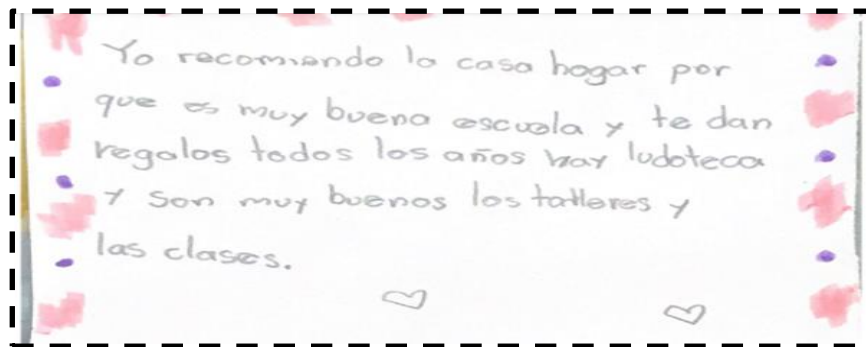 Yo recomiendo la casa hogar por
que es muy buena escuela y te dan
regalos todos los años hay ludoteca
y son muy buenos los talleres y
las clases.